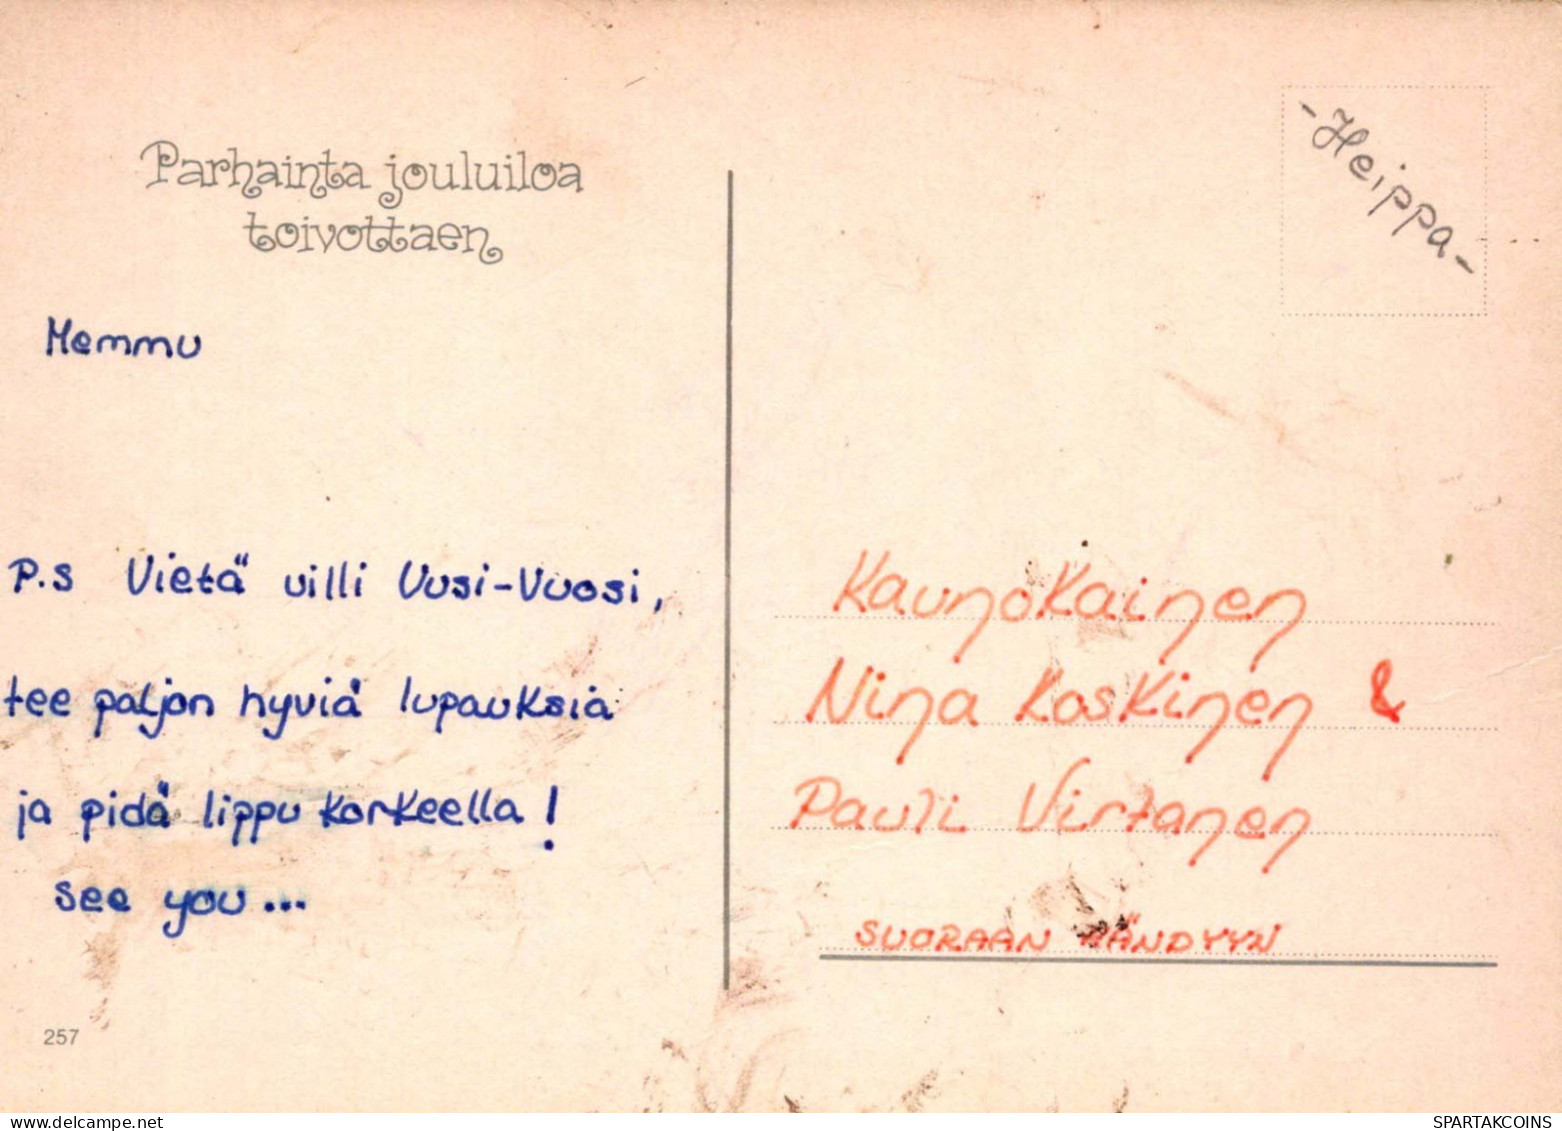 Parhainta jouluiloa
toivottaen
Memmu
P.S Vietä villi Uusi-Vuosi,
tee paljon hyviä lupauksia
ja pidä lippu korkeella!
see you...
257
-Heippa-
Kaunokainen
Nina Koskinen &
Pauli Virtanen
SUORAAN
SPARTAKCOINS